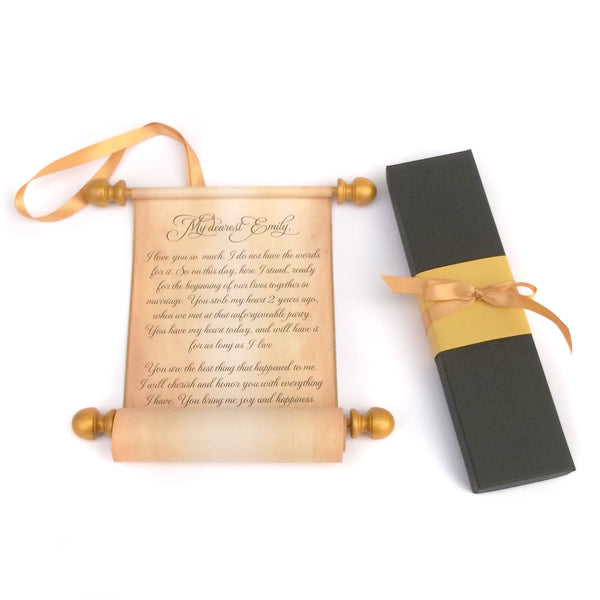 My dearest Emily,
I love you so much. I do not have the words
for it. So on this day, here I stand, ready
for the beginning of our lives together in
marriage. You stole my heart 2 years ago,
when we met at that unforgiveable party.
You have my heart today, and will have it
for as long as I live.
You are the best thing that happened to me.
I will cherish and honor you with everything
I have. You bring me joy and happiness.